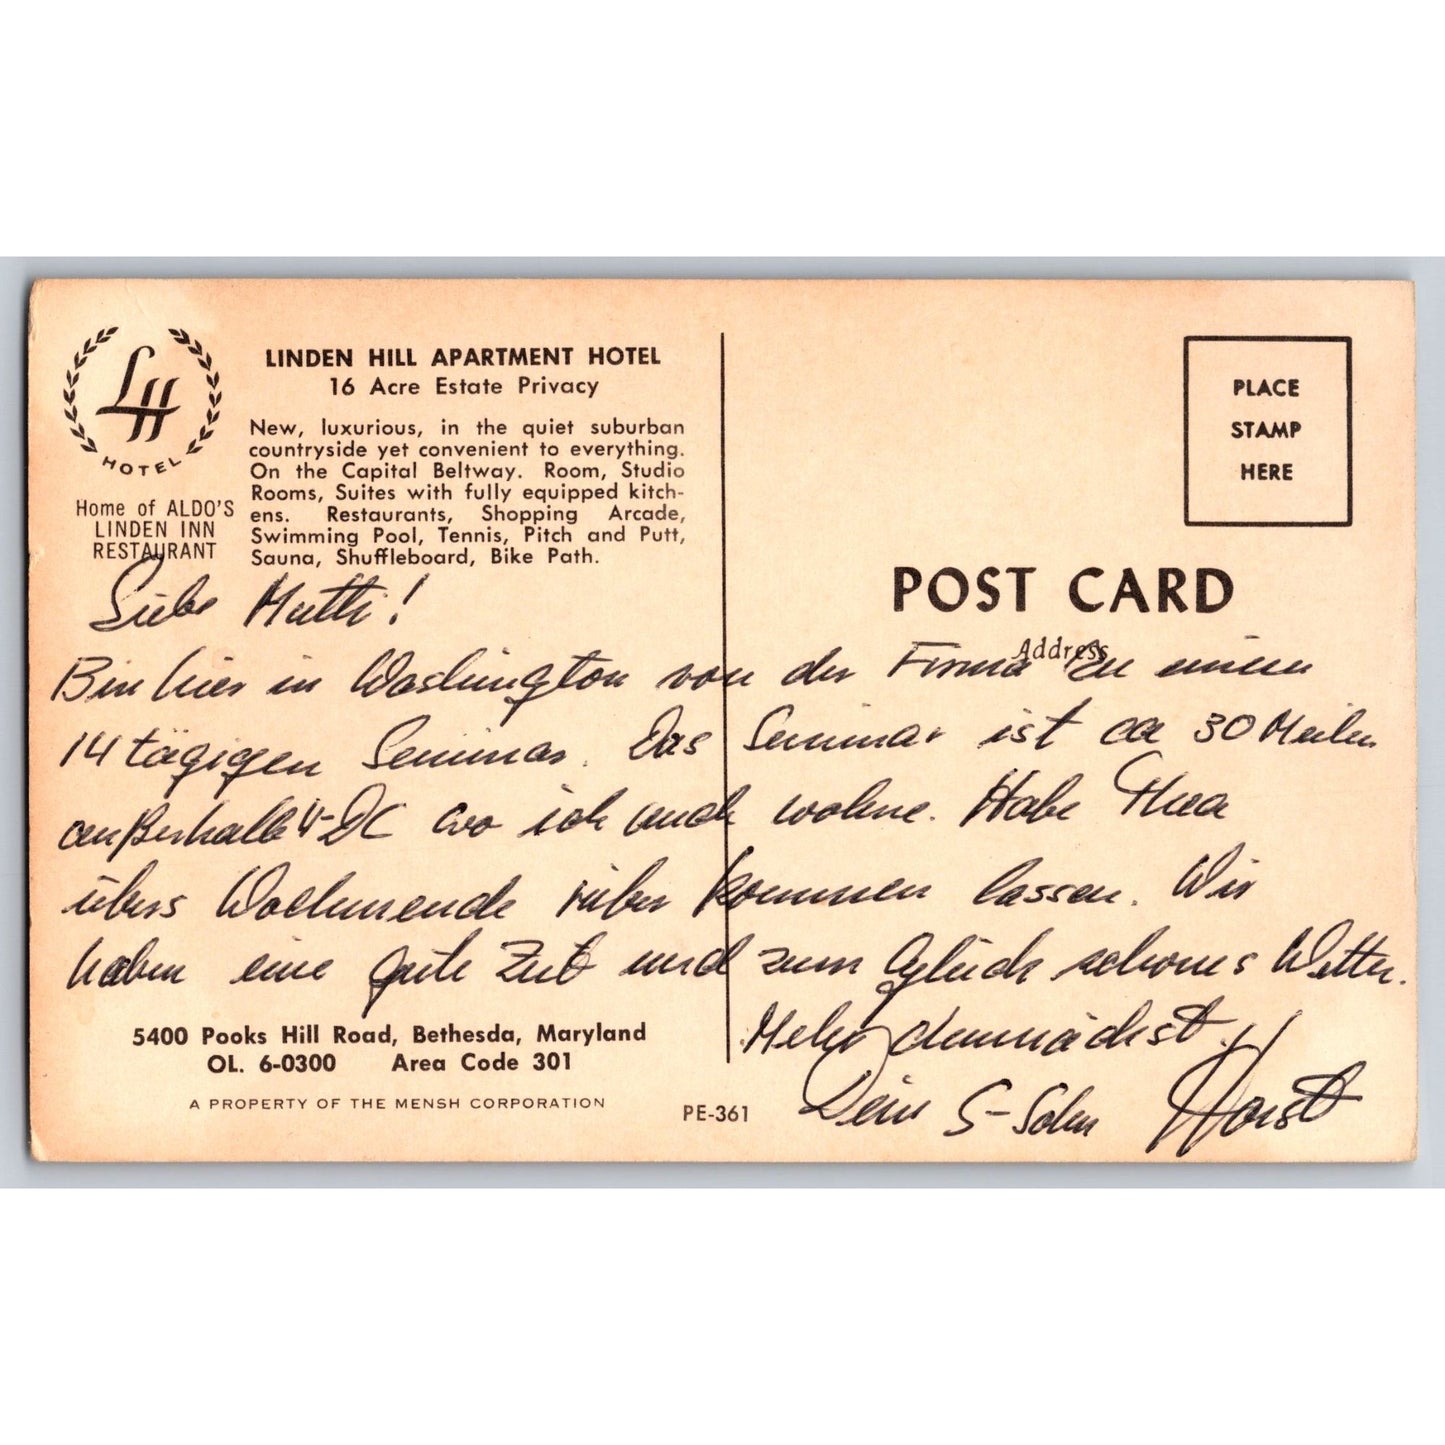 LH
HOTEL
Home of ALDO'S
LINDEN INN
RESTAURANT
LINDEN HILL APARTMENT HOTEL
16 Acre Estate Privacy
New, luxurious, in the quiet suburban
countryside yet convenient to everything.
On the Capital Beltway. Room, Studio
Rooms, Suites with fully equipped kitch-
ens. Restaurants, Shopping Arcade,
Swimming Pool, Tennis, Pitch and Putt,
Sauna, Shuffleboard, Bike Path.
PLACE
STAMP
HERE
POST CARD
Address
Liebe Mutti!
Bin hier in Washington von der Firma zu einem
14 tägigen Seminar. Das Seminar ist ca 30 Meilen
außerhalb v. DC wo ich auch wohne. Habe Thea
übers Wochenende rüber kommen lassen. Wir
haben eine gute Zeit und zum Glück schönes Wetter.
Mehr demnächst.
Dein S-Sohn Horst
5400 Pooks Hill Road, Bethesda, Maryland
OL. 6-0300 Area Code 301
A PROPERTY OF THE MENSH CORPORATION
PE-361